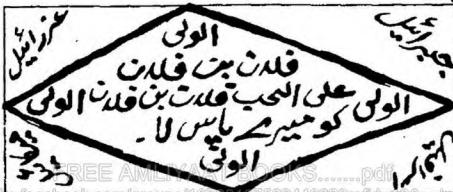 عزرائیل
جبرائیل
الولی
فلان بن فلان
الولی علی الحب فلان بن فلان الولی
کو میرے پاس لا۔
الولی
اسرافیل
FREE AMLIYAAT BOOKS.......pdf